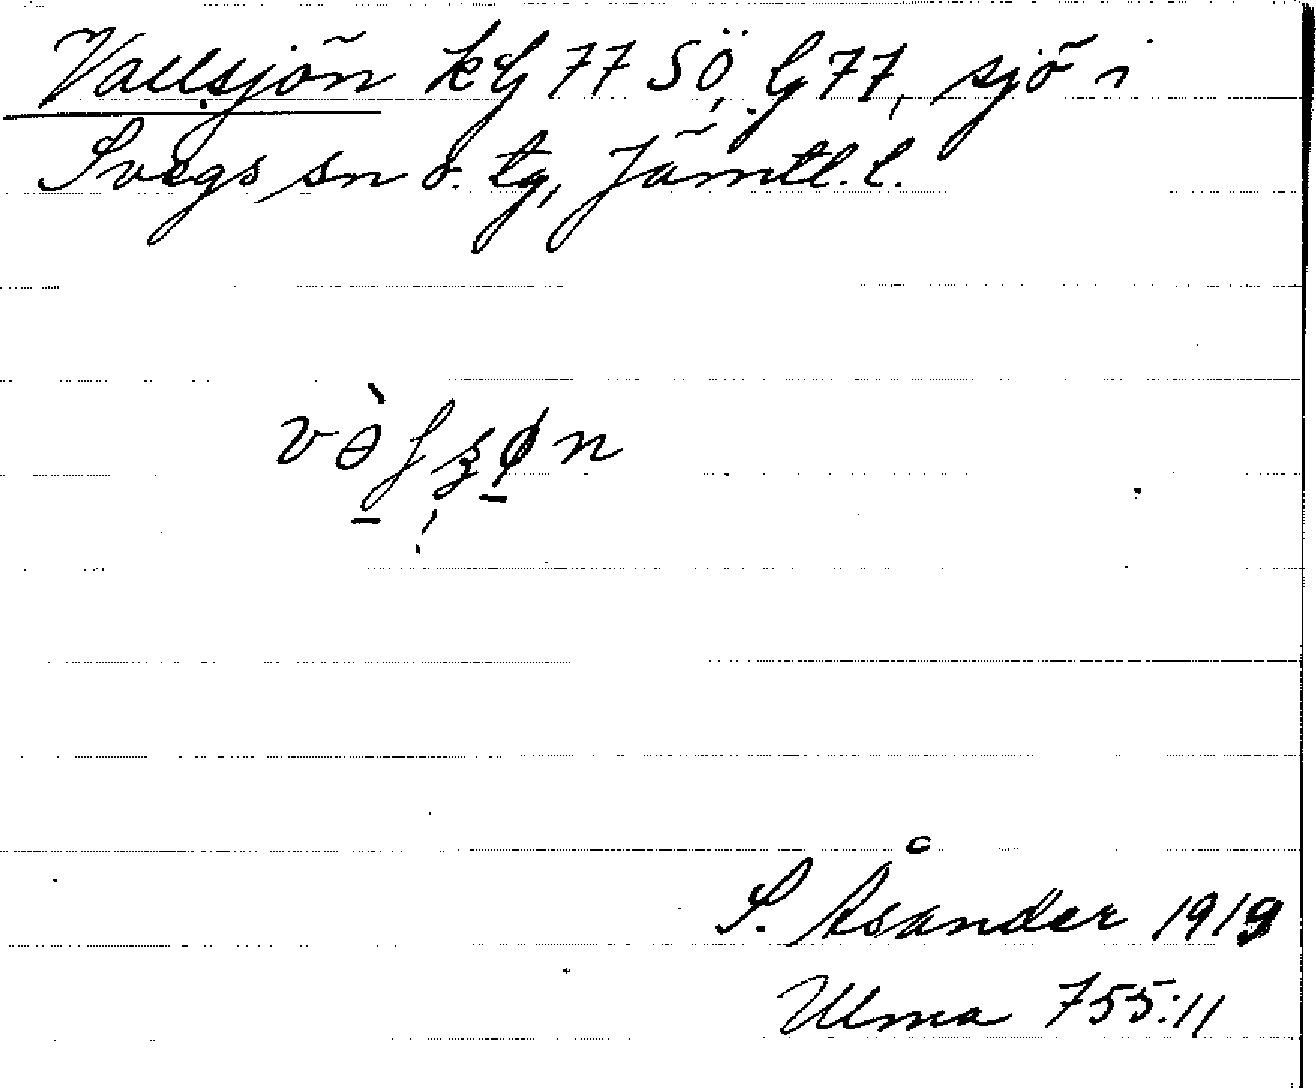 Vallsjön kG 77 SÖ, G 77, sjö i
Svegs sn o. tg, Jämtl. l.
S. Åsander 1919
Ulma 755:11